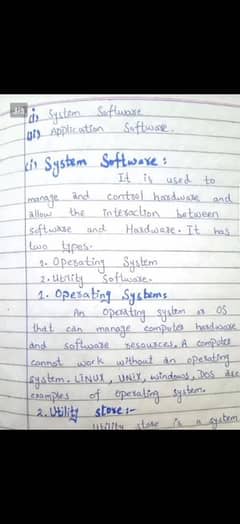 i) System Software
ii) Application Software.
(i) System Software :
It is used to
manage and control hardware and
allow the interaction between
software and Hardware. It has
two types.
1. Operating System
2. Utility Software.
1. Operating Systems
An operating system or OS
that can manage computer hardware
and software resources. A computer
cannot work without an operating
system. LINUX, UNIX, windows, DOS are
examples of operating system.
2. Utility store :-
Utility store is a system